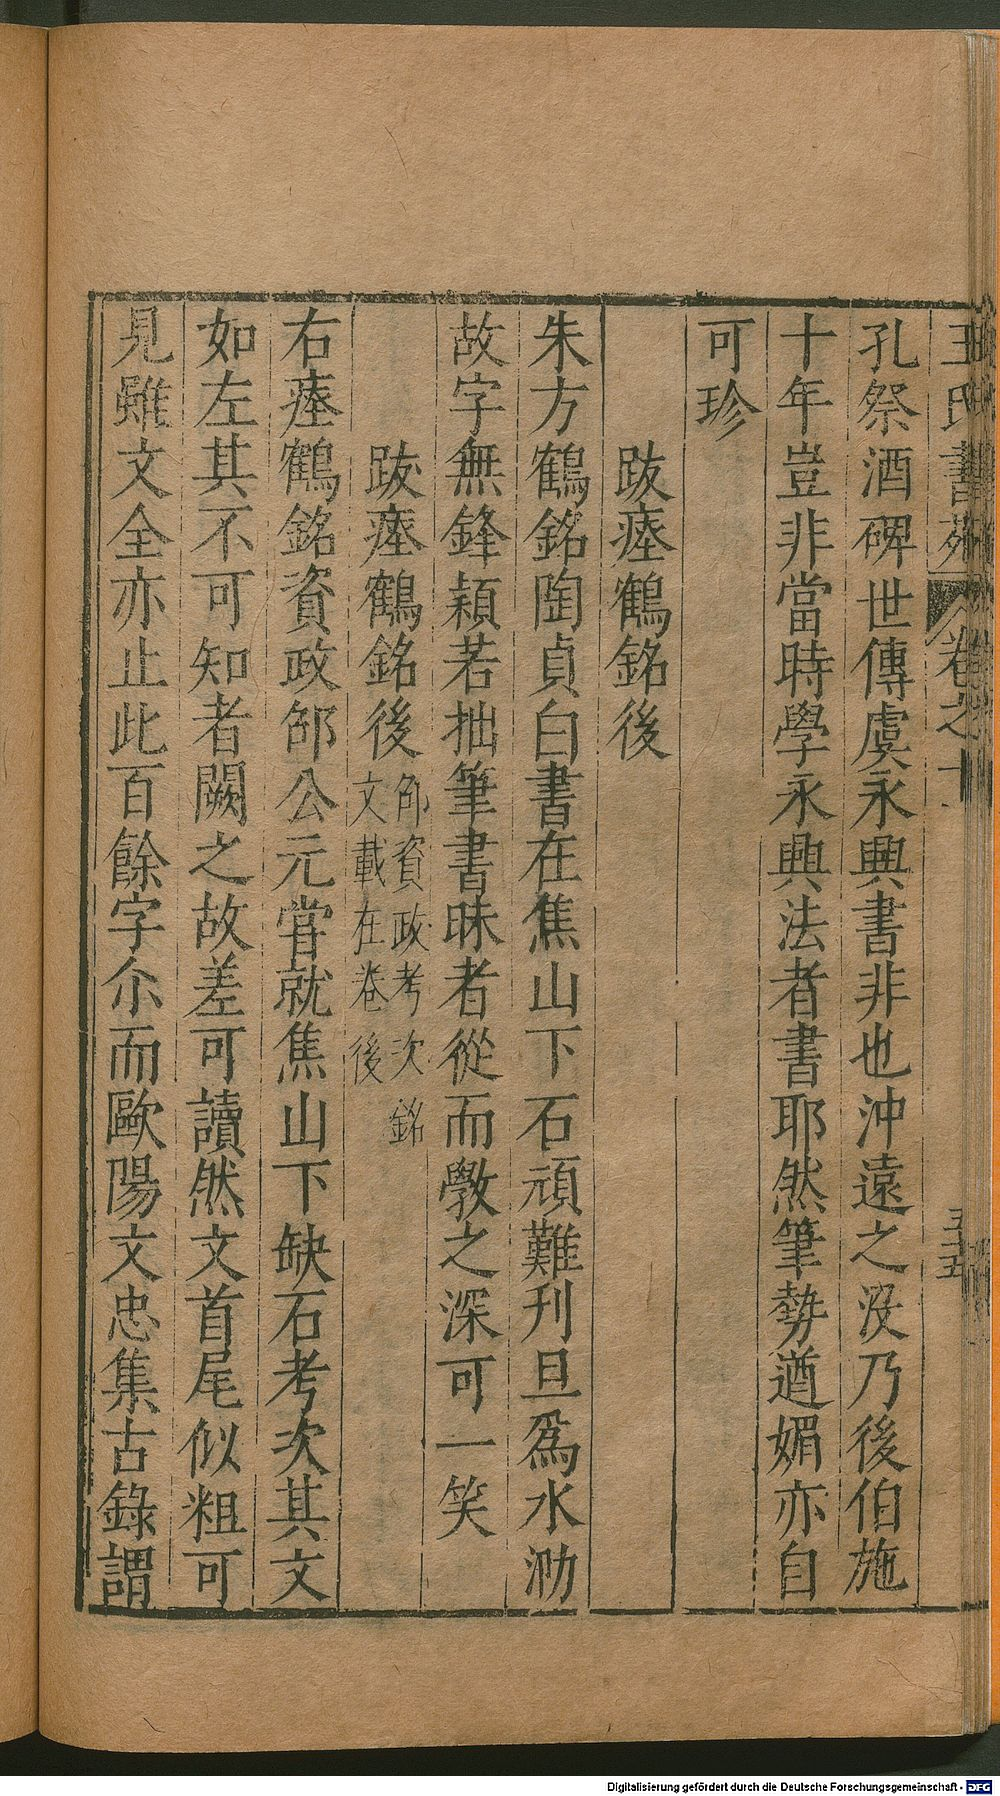 王氏書苑 卷之十 五十五
孔祭酒碑世傳虞永興書非也沖遠之沒乃後伯施
十年豈非當時學永興法者書耶然筆勢遒媚亦自
可珍
跋瘞鶴銘後
朱方鶴銘陶貞白書在焦山下石頑難刊且爲水泐
故字無鋒穎若拙筆書昧者從而斆之深可一笑
跋瘞鶴銘後 邵資政考次銘
文載在卷後
右瘞鶴銘資政邵公亢甞就焦山下缺石考次其文
如左其不可知者闕之故差可讀然文首尾似粗可
見雖文全亦止此百餘字尒而歐陽文忠集古錄謂
Digitalisierung gefördert durch die Deutsche Forschungsgemeinschaft - DFG